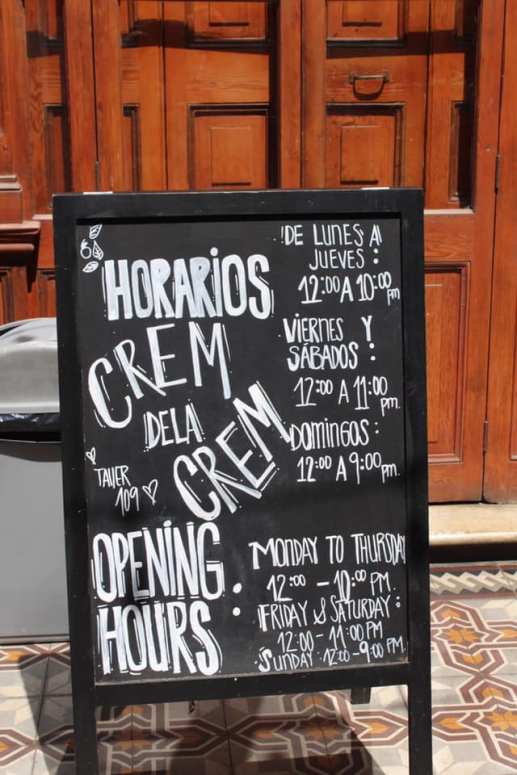 HORARIOS
CREM
DE LA
CREM
TALLER
109
DE LUNES A
JUEVES :
12:00 A 10:00 pm
VIERNES Y
SÁBADOS :
12:00 A 11:00 pm.
DOMINGOS :
12:00 A 9:00 pm.
OPENING
HOURS :
MONDAY TO THURSDAY
12:00 - 10:00 PM.
FRIDAY & SATURDAY :
12:00 - 11:00 PM
SUNDAY : 12:00 - 9:00 PM.